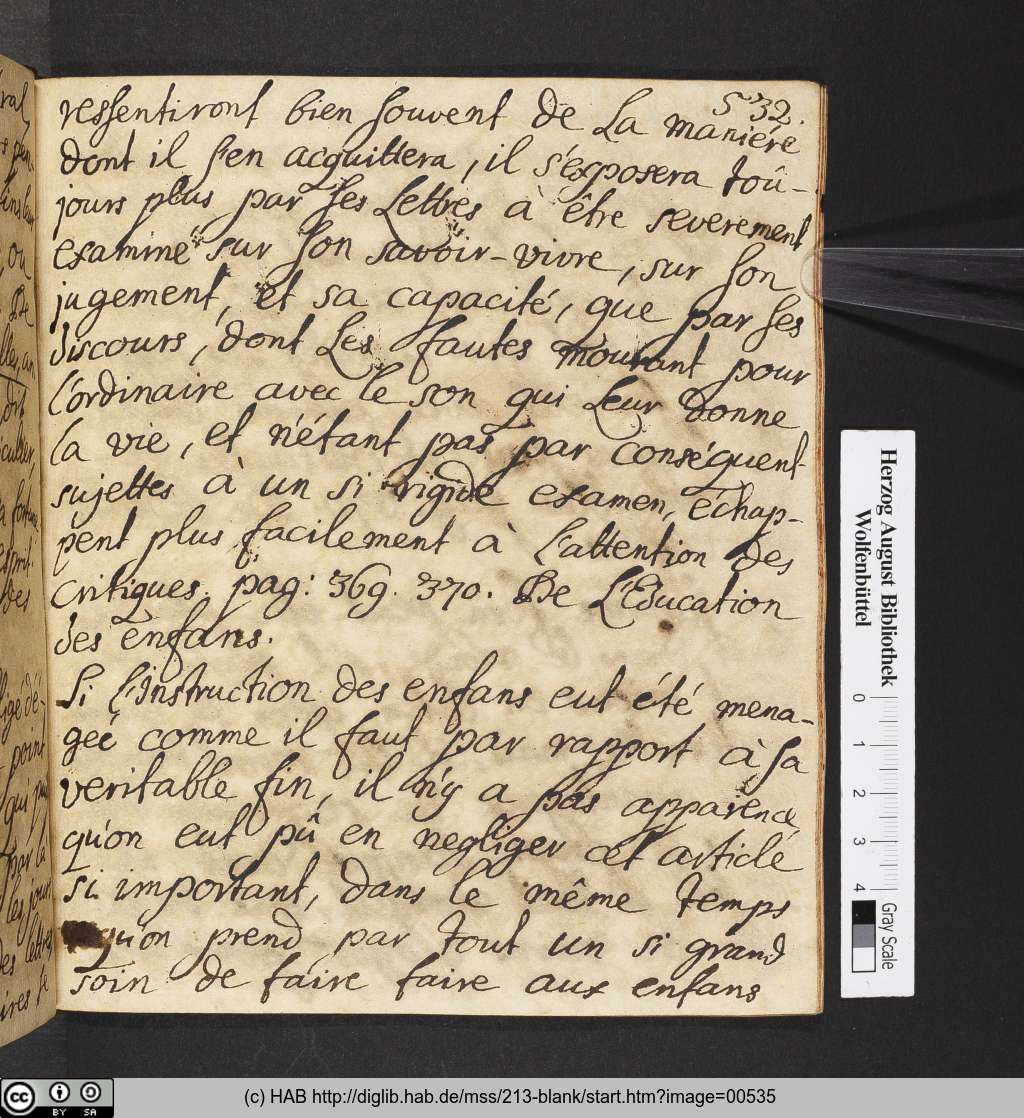 532.
ressentiront bien souvent de La maniére
dont il s'en acquittera, il s'exposera toû-
jours plus par ses Lettres à être severement
examiné sur son savoir-vivre, sur son
jugement, et sa capacité, que par ses
discours, dont Les fautes mourant pour
l'órdinaire avec le son qui Leur donne
la vie, et n'étant pas par conséquent
sujettes à un si rigide examen, échap-
pent plus facilement à l'attention des
Critiques. pag: 369. 370. De L'Education
des enfans.
Si l'instruction des enfans eut été mena-
geé comme il faut par rapport à sa
veritable fin, il n'y a pas apparence,
qu'on eut pû en negliger cet article
si important, dans le même temps
qu'on prend par tout un si grand
soin de faire faire aux enfans
Herzog August Bibliothek
Wolfenbüttel
0 1 2 3 4 Gray Scale
(c) HAB http://diglib.hab.de/mss/213-blank/start.htm?image=00535
cc BY SA